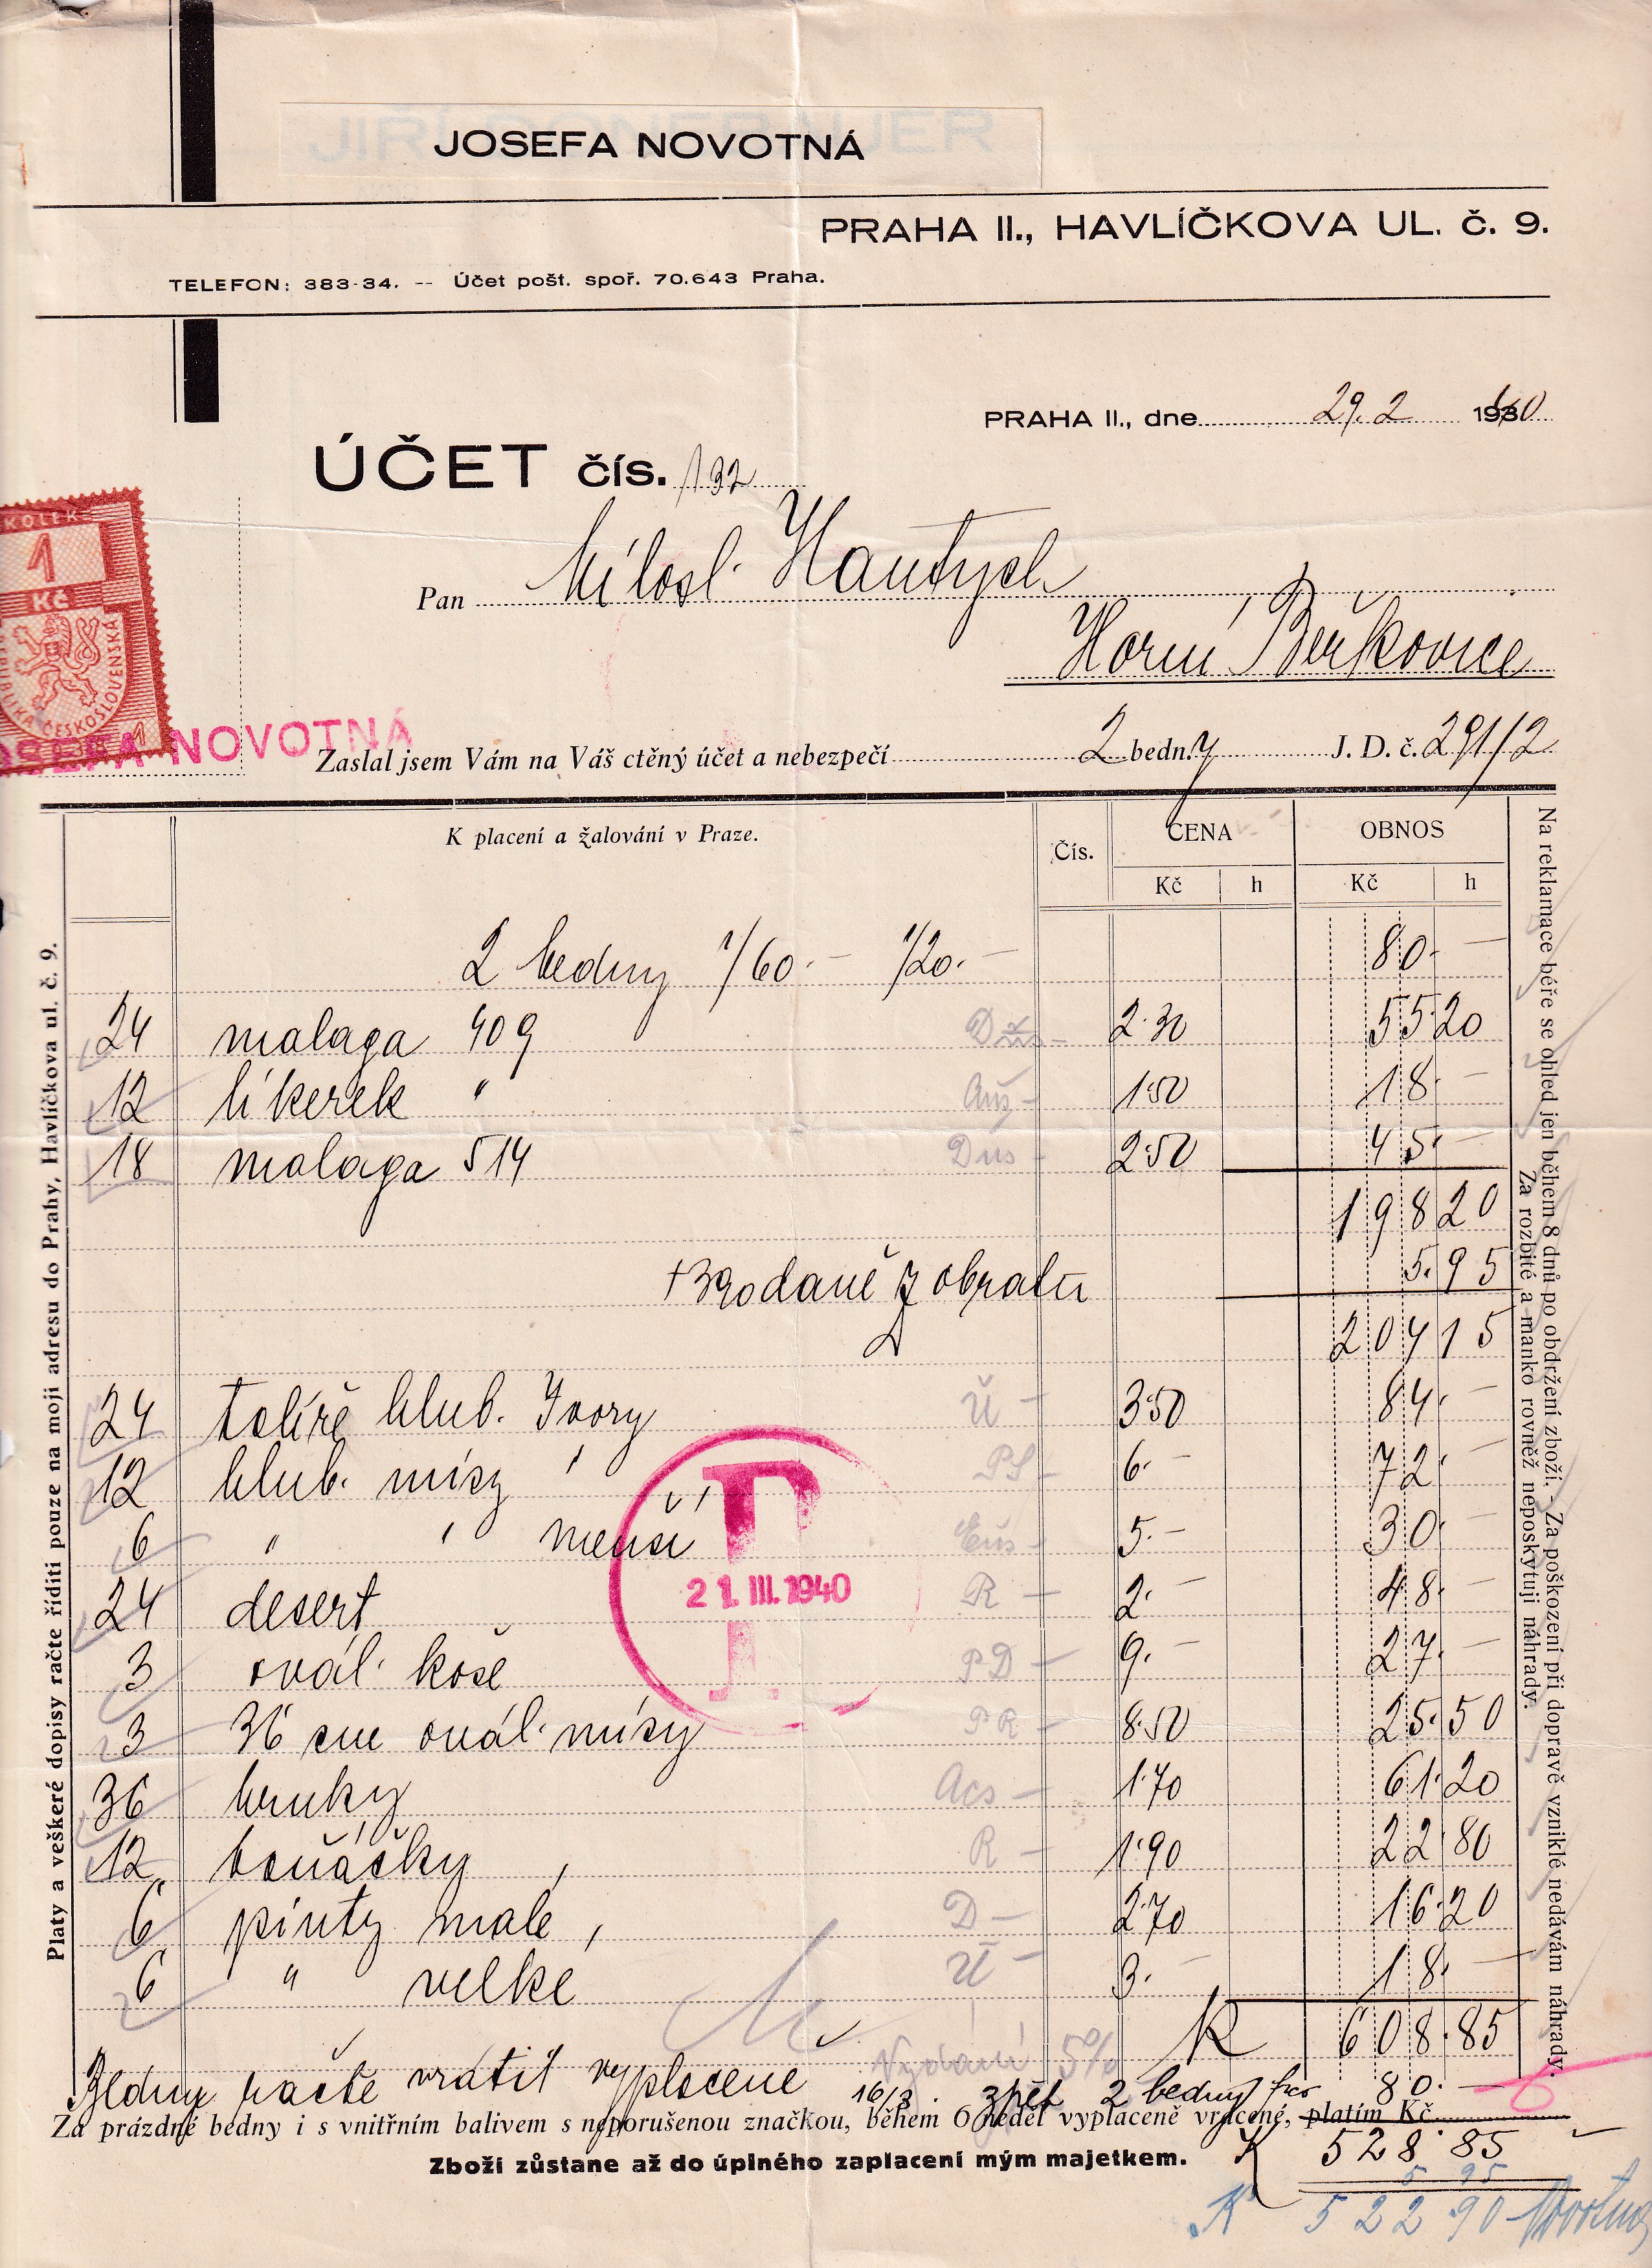 JOSEFA NOVOTNÁ
PRAHA II., HAVLÍČKOVA UL. č. 9.
TELEFON: 383-34. -- Účet pošt. spoř. 70.643 Praha.
PRAHA II., dne 29.2 1940
ÚČET čís. 132
KOLEK
1
Kč
REPUBLIKA ČESKOSLOVENSKÁ
1
Pan Milosl. Hantych
Horní Beřkovice
JOSEFA NOVOTNÁ
Zaslal jsem Vám na Váš ctěný účet a nebezpečí 2 bedn.y J. D. č. 291/2
K placení a žalování v Praze. Čís. CENA OBNOS
Kč h Kč h
2 bedny 1/60.- 1/20.- 80.-
24 malaga 409 2.30 55.20
12 likerek " Auš- 1.50 18.-
18 malaga 514 Dus- 2.50 45.-
198 20
+3% daně z obratu 5.95
204 15
24 talíře hlub. Ivory Ú- 3.50 84.-
12 hlub. mísy " PS- 6.- 72.-
6 " " menší Euš- 5.- 30.-
24 desert R- 2.- 48.-
3 ovál. koše PD- 9.- 27.-
3 36 cm ovál. mísy PR- 8.50 25.50
36 hruky Acs- 1.70 61.20
12 boňáčky R- 1.90 22.80
6 pinty malé D- 2.70 16.20
6 " velké Ú- 3.- 18.-
21. III. 1940
K 608.85
Bedny račte vrátit vyplaceně 5%
16/3. zpět 2 bedny fco 80.-
Za prázdné bedny i s vnitřním balivem s neporušenou značkou, během 6 neděl vyplaceně vrácené, platím Kč
K 528.85
Zboží zůstane až do úplného zaplacení mým majetkem.
5 95
K 522 90 Novotná
Platy a veškeré dopisy račte říditi pouze na moji adresu do Prahy, Havlíčkova ul. č. 9.
Na reklamace béře se ohled jen během 8 dnů po obdržení zboží. - Za poškození při dopravě vzniklé nedávám náhrady.
Za rozbité a manko rovněž neposkytuji náhrady.